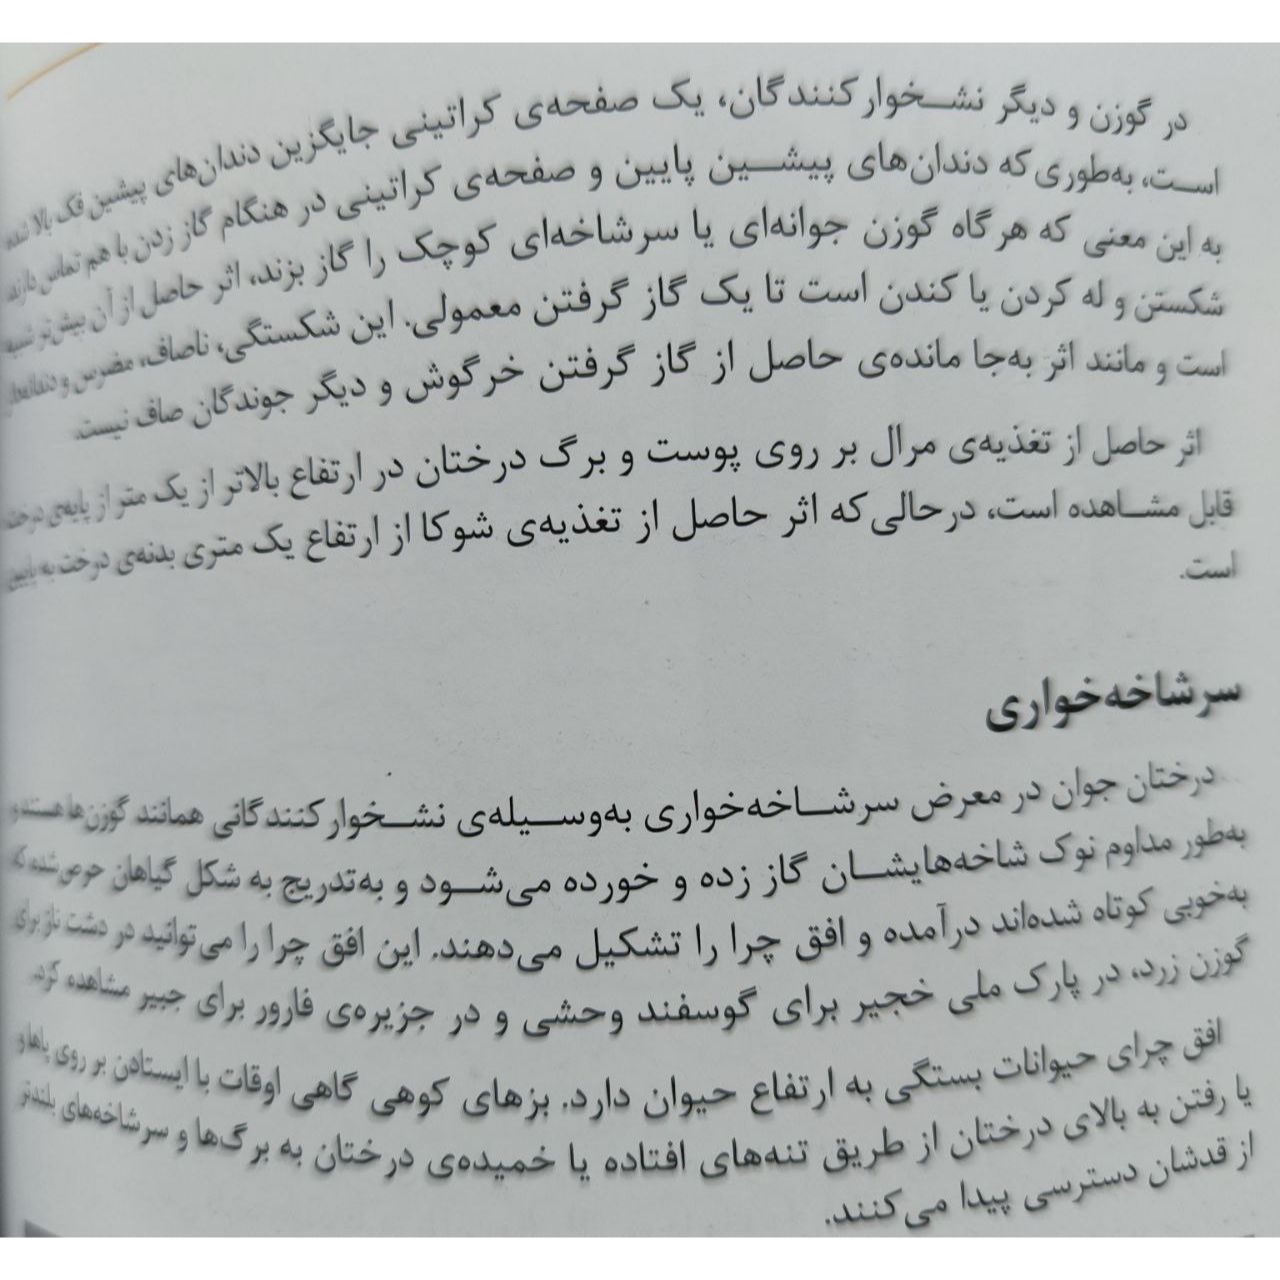 در گوزن و دیگر نشخوارکنندگان، یک صفحه‌ی کراتینی جایگزین دندان‌های پیشین فک بالا شده
است، به‌طوری که دندان‌های پیشین پایین و صفحه‌ی کراتینی در هنگام گاز زدن با هم تماس دارند
به این معنی که هر گاه گوزن جوانه‌ای یا سرشاخه‌ای کوچک را گاز بزند، اثر حاصل از آن بیش‌تر شبیه
شکستن و له کردن یا کندن است تا یک گاز گرفتن معمولی. این شکستگی، ناصاف، مضرس و دندانه‌دار
است و مانند اثر به‌جا مانده‌ی حاصل از گاز گرفتن خرگوش و دیگر جوندگان صاف نیست.
اثر حاصل از تغذیه‌ی مرال بر روی پوست و برگ درختان در ارتفاع بالاتر از یک متر از پایه‌ی درخت
قابل مشاهده است، درحالی که اثر حاصل از تغذیه‌ی شوکا از ارتفاع یک متری بدنه‌ی درخت به پایین
است.
سرشاخه‌خواری
درختان جوان در معرض سرشاخه‌خواری به‌وسیله‌ی نشخوارکنندگانی همانند گوزن‌ها هستند و
به‌طور مداوم نوک شاخه‌هایشان گاز زده و خورده می‌شود و به‌تدریج به شکل گیاهان حرص شده که
به‌خوبی کوتاه شده‌اند درآمده و افق چرا را تشکیل می‌دهند. این افق چرا را می‌توانید در دشت ناز برای
گوزن زرد، در پارک ملی خجیر برای گوسفند وحشی و در جزیره‌ی فارور برای جبیر مشاهده کرد.
افق چرای حیوانات بستگی به ارتفاع حیوان دارد. بزهای کوهی گاهی اوقات با ایستادن بر روی پاها و
یا رفتن به بالای درختان از طریق تنه‌های افتاده یا خمیده‌ی درختان به برگ‌ها و سرشاخه‌های بلندتر
از قدشان دسترسی پیدا می‌کنند.